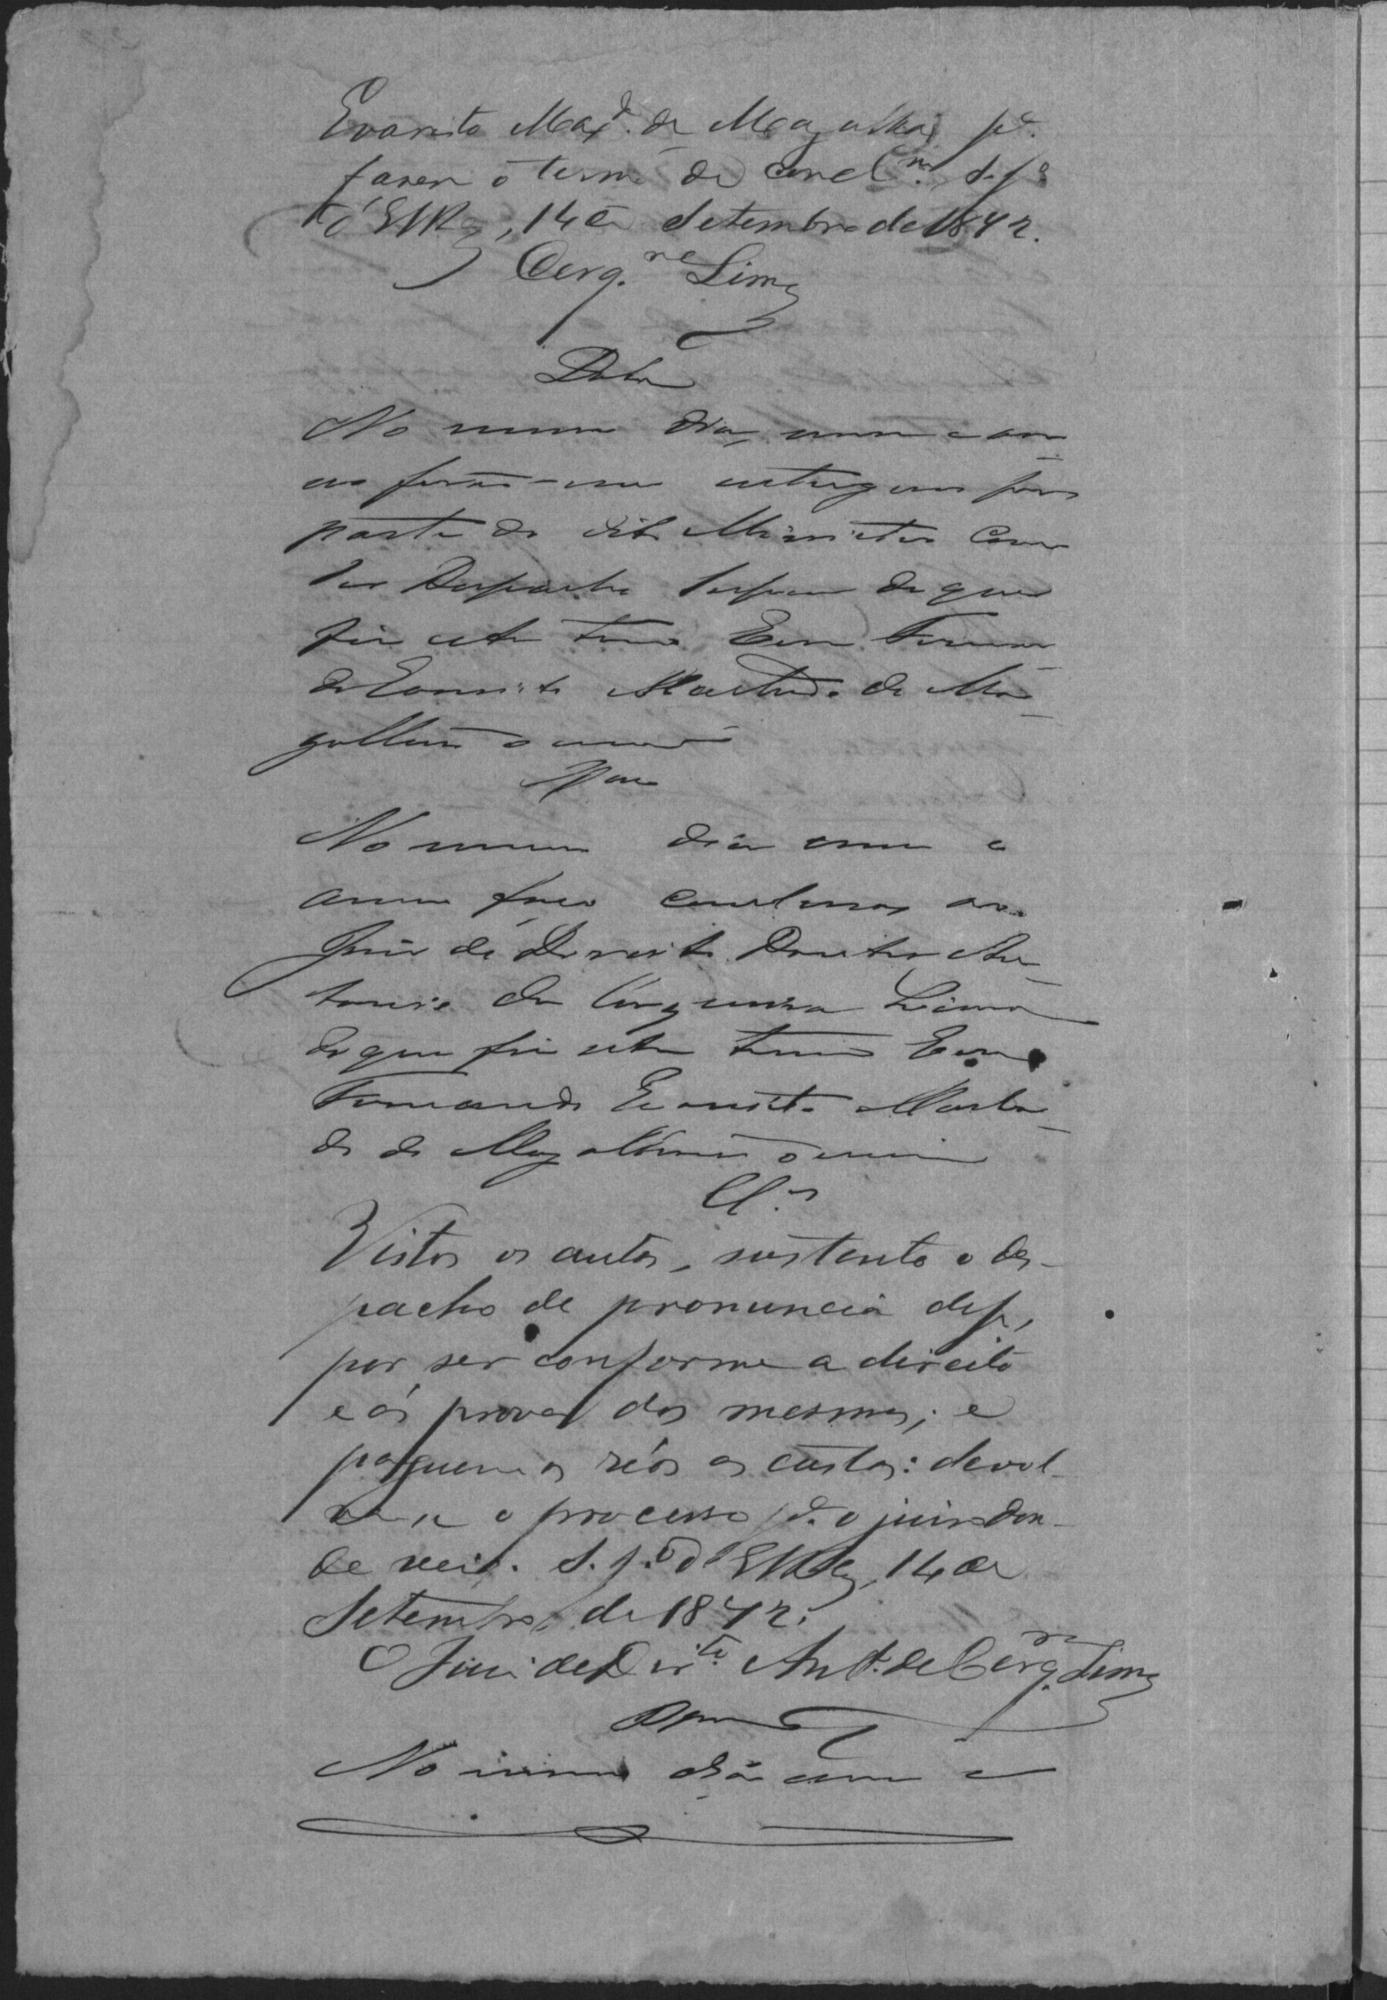 Evaristo Max.do de Magalhães p.a
fazer o termo de concl.m S. J.e
d'ElRey, 14 de Setembro de 1842.
Cerq.ra Lima
Data
No mesmo dia, mes e an-
no forão-me entregues por
parte do dito Ministro com
seu Despacho supra de que
fiz este termo Eu Fernan-
do Evaristo Machado de Ma-
galhães o escrevi
No mesmo dia mes e
anno faço conclusos ao
Juiz de Direito Doutor An-
tonio de Cerqueira Lima
de que fiz este termo Eu
Fernando Evaristo Macha-
do de Magalhães o escrevi
Cl.os
Vistos os autos, sustento o des-
pacho de pronuncia def,
por ser conforme a direito
e ás provas dos mesmos; e
paguem os réos as custas: devol-
va-se o processo p.a o juiso don-
de veio. S. J. d'ElRey, 14 de
Setembro de 1842.
O Juiz de Dir.to Ant.o de Cerq.ra Lima
No mesmo dia mes e